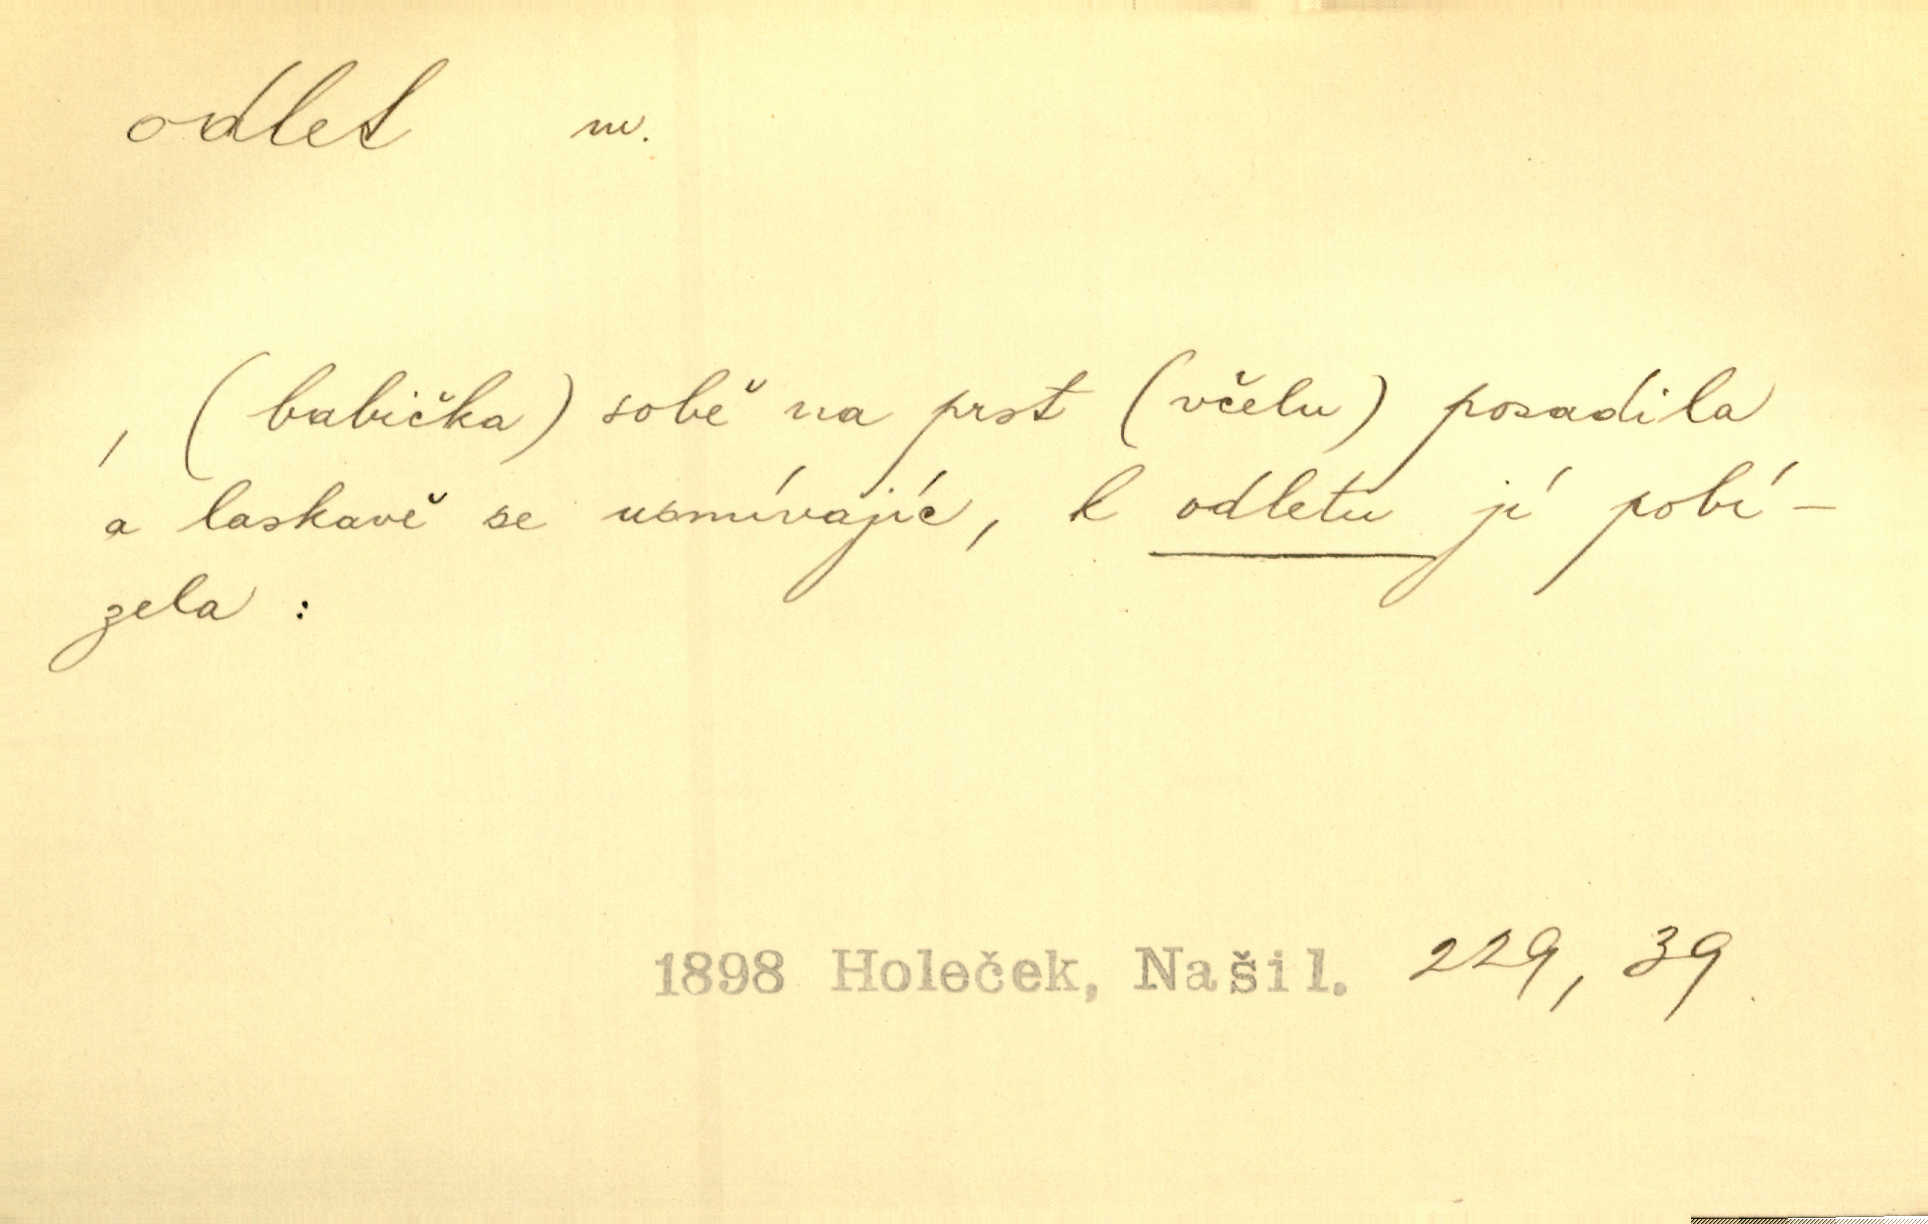 odlet m.
, (babička) sobě na prst (včelu) posadila
a laskavě se usmívajíc, k odletu jí pobí-
zela :
1898 Holeček, Našil. 229, 39